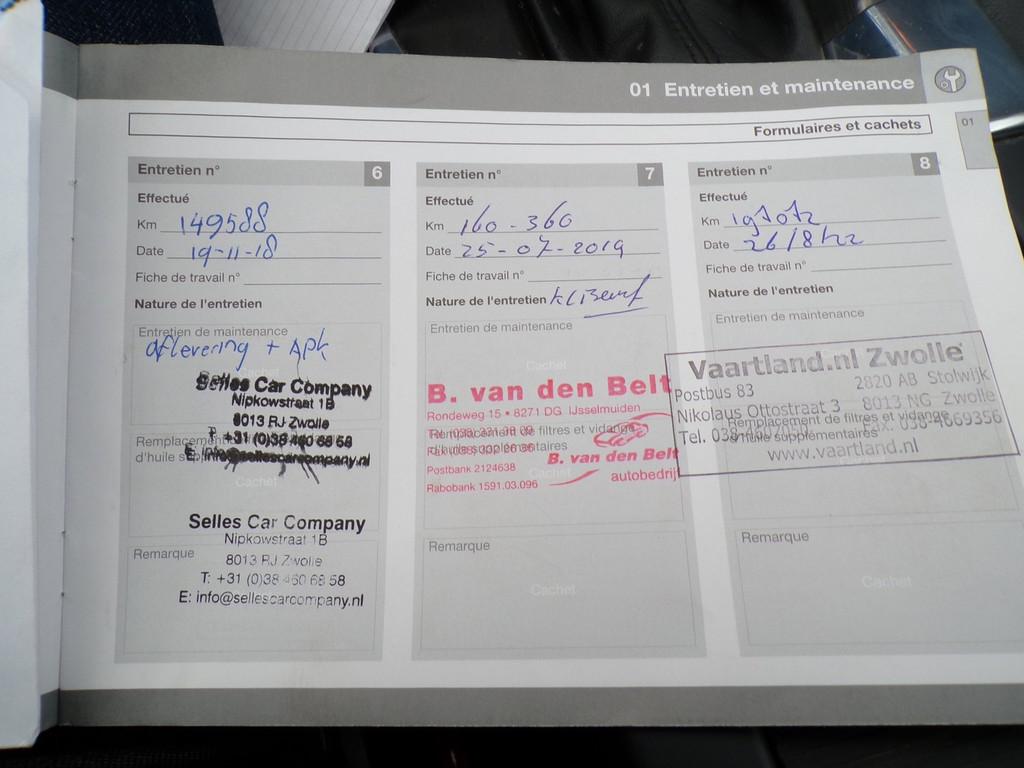 01 Entretien et maintenance
Formulaires et cachets
01
Entretien n° 6
Effectué
Km 149588
Date 19-11-18
Fiche de travail n°
Nature de l'entretien
Entretien de maintenance
aflevering + APK
Selles Car Company
Nipkowstraat 1B
8013 RJ Zwolle
T: +31 (0)38 460 68 58
E: info@sellescarcompany.nl
Remplacement
d'huile
Cachet
Selles Car Company
Nipkowstraat 1B
Remarque
8013 RJ Zwolle
T: +31 (0)38 460 68 58
E: info@sellescarcompany.nl
Entretien n° 7
Effectué
Km 160-360
Date 25-07-2019
Fiche de travail n°
Nature de l'entretien
Entretien de maintenance
Cachet
B. van den Belt
Rondeweg 15 • 8271 DG IJsselmuiden
Remplacement de filtres et vidange
d'huile supplémentaires
Postbank 2124638
B. van den Belt
Rabobank 1591.03.096
autobedrijf
Cachet
Remarque
Cachet
Entretien n° 8
Effectué
Km
Date 26/8/22
Fiche de travail n°
Nature de l'entretien
Entretien de maintenance
Vaartland.nl Zwolle
Postbus 83 2820 AB Stolwijk
Nikolaus Ottostraat 3 8013 NG Zwolle
Remplacement de filtres et vidange
Tel. Fax. 038-4669356
d'huile supplémentaires
www.vaartland.nl
Remarque
Cachet